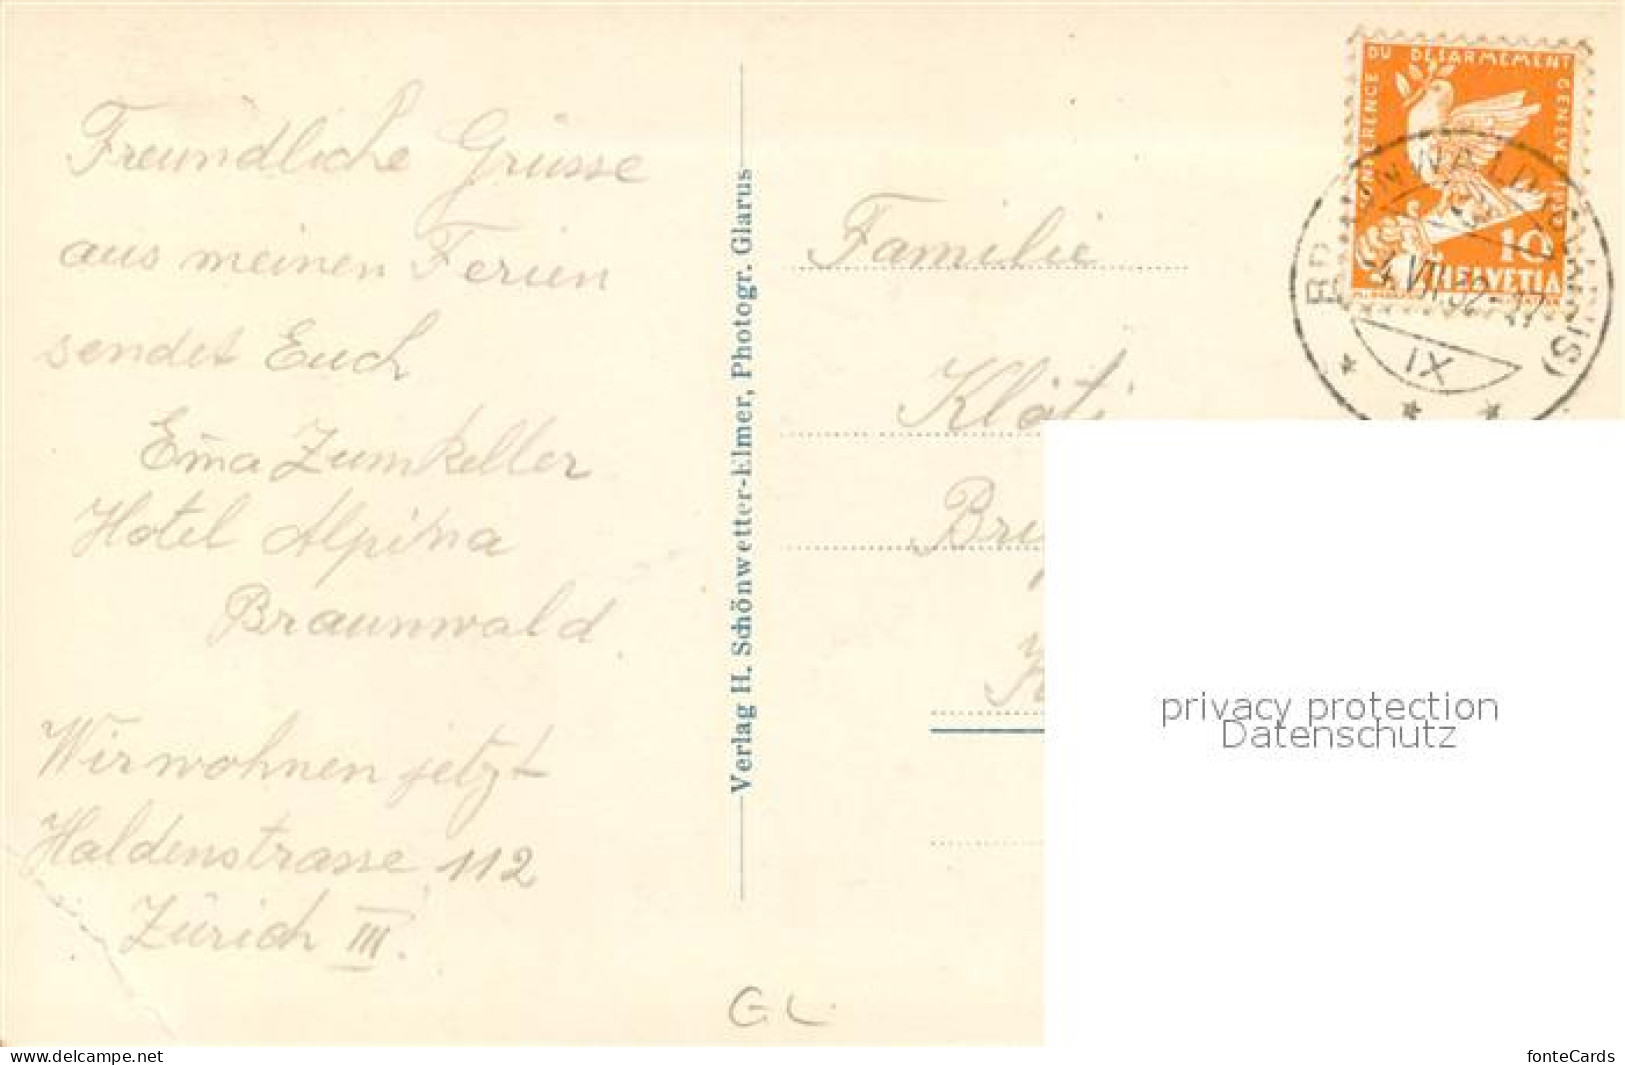 Freundliche Grüsse
aus meinen Ferien
sendet Euch
Em̄a Zumkeller
Hotel Alpina
Braunwald.
Wir wohnen jetzt
Haldenstrasse 112
Zürich III.
Verlag H. Schönwetter-Elmer, Photogr. Glarus
Familie
Kläti
CONFERENCE DU DÉSARMEMENT GENEVE 1932
10
HELVETIA
BRAUNWALD (GLARUS)
-4. VII. 32-17
IX
privacy protection
Datenschutz
GL
www.delcampe.net
fonteCards